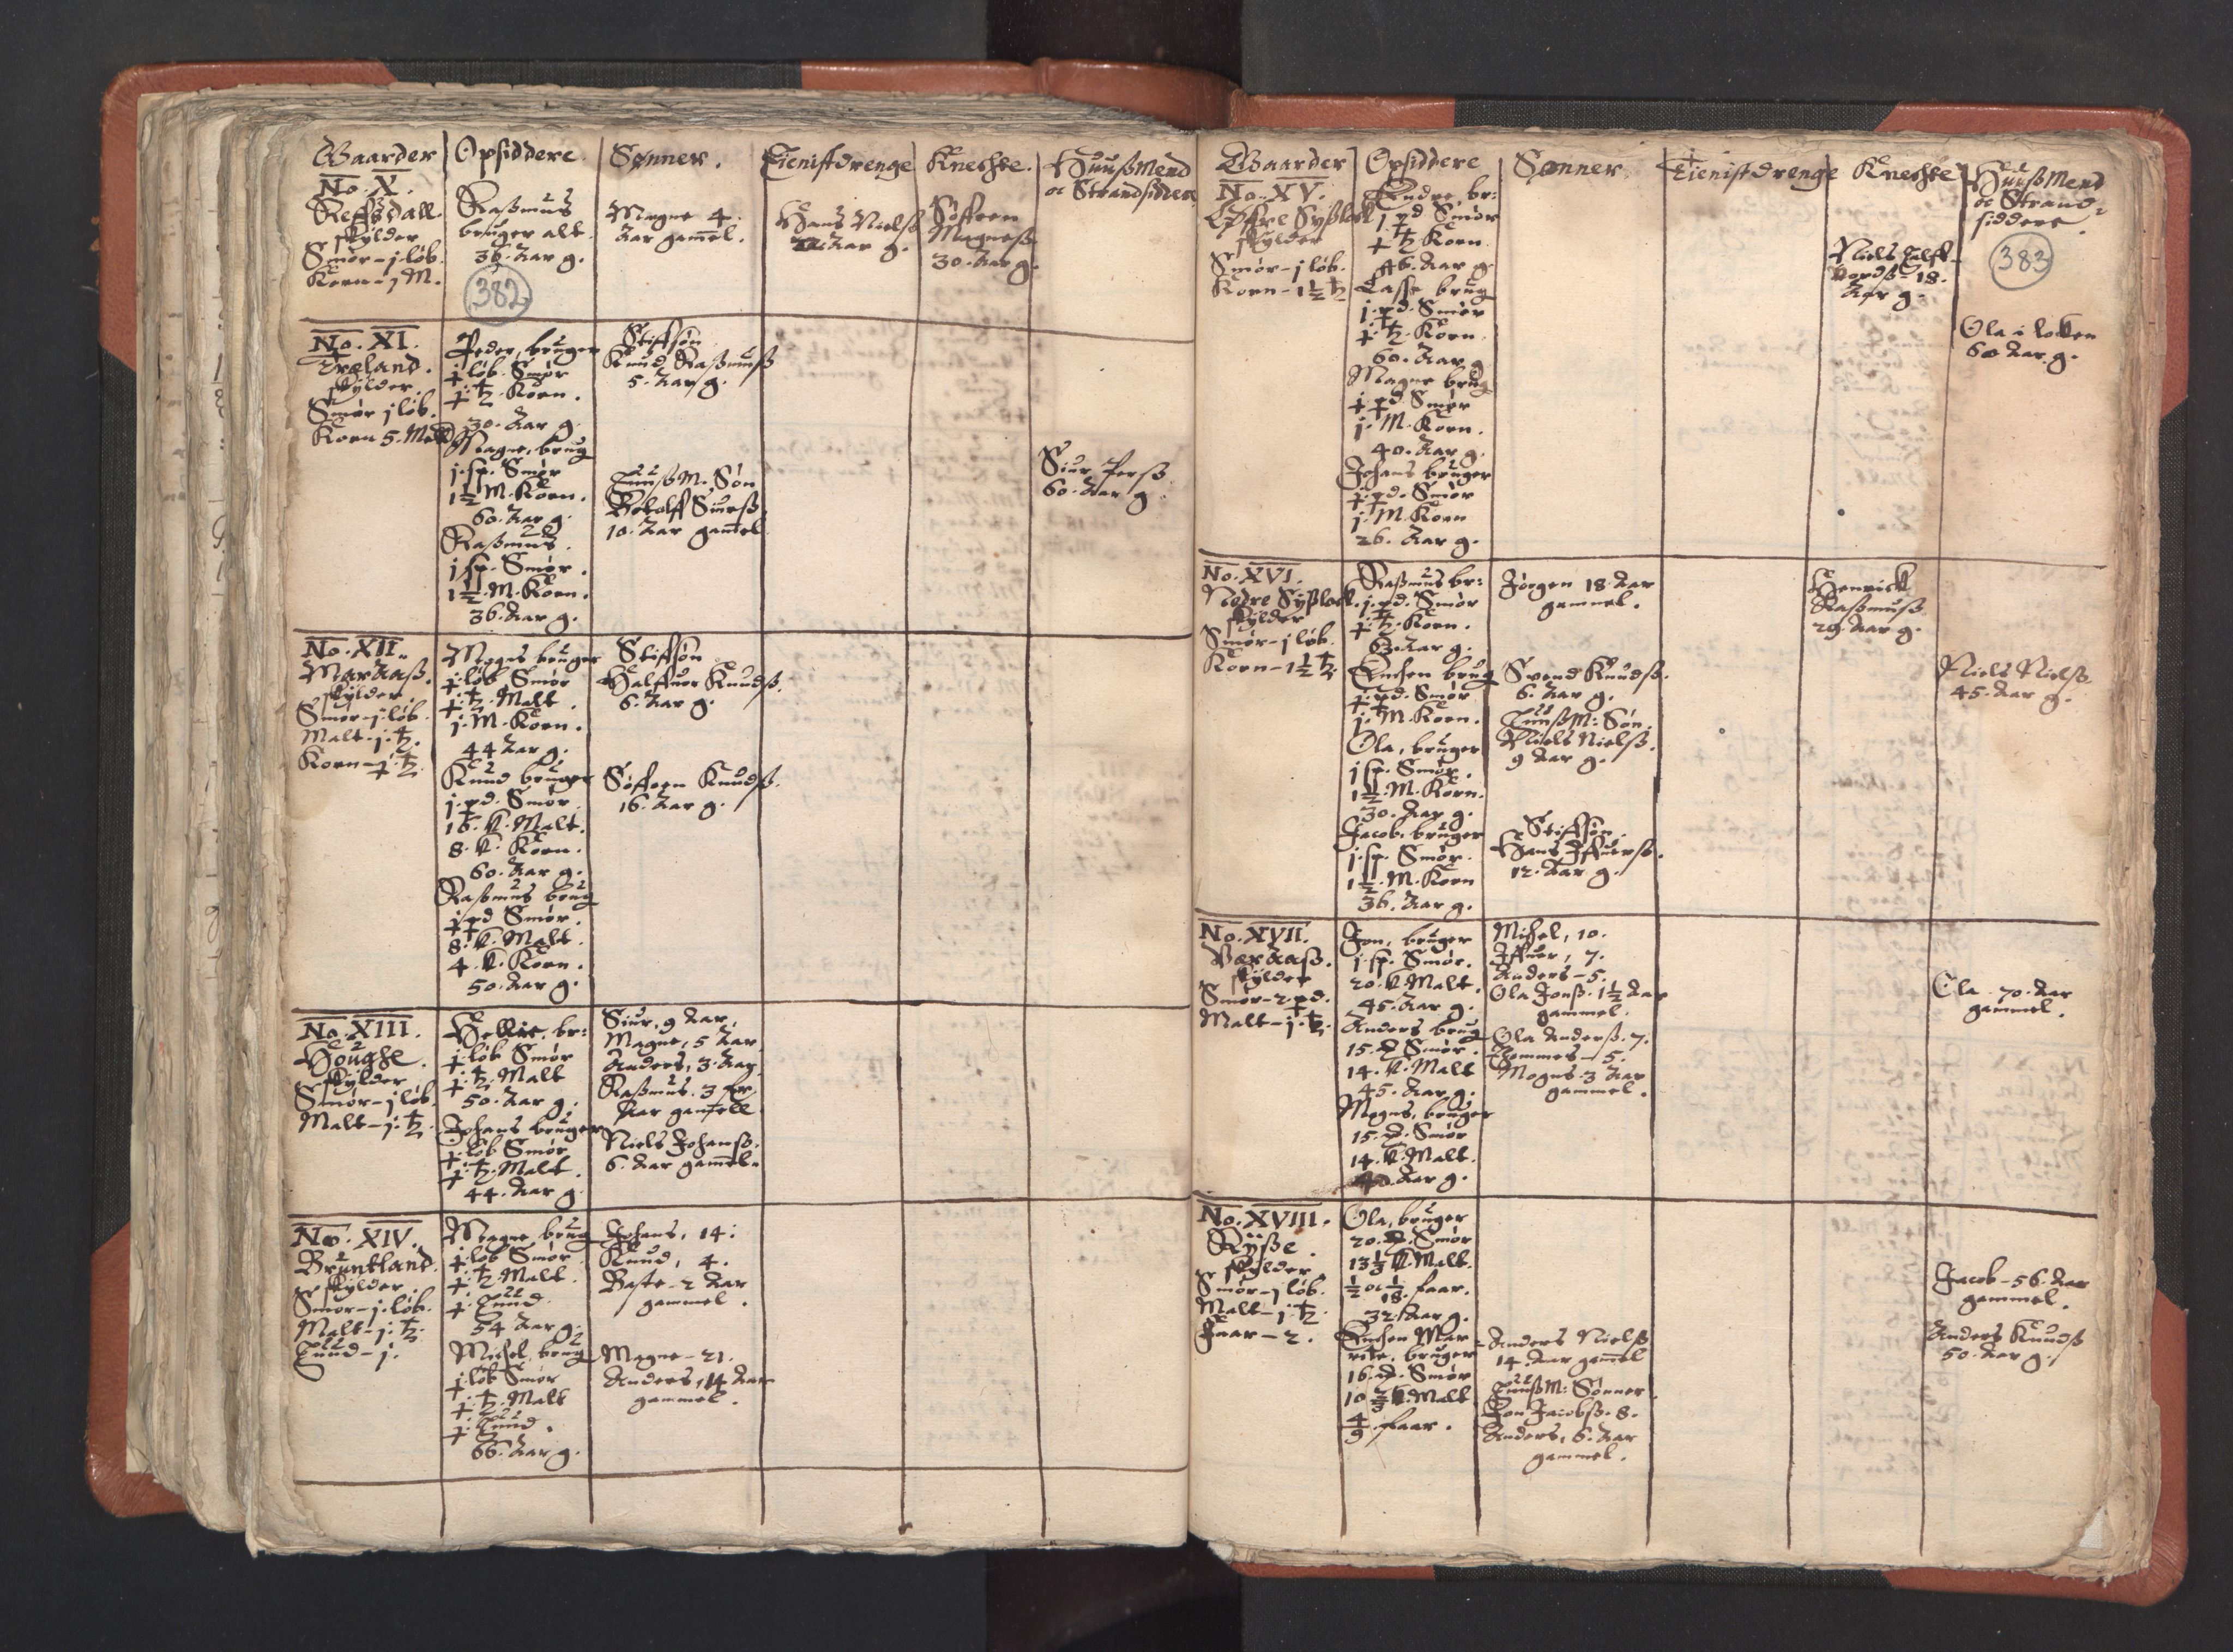 Gaarder Opsiddere Sønner. Tienistdrenge Knechte. Huußmend
oc Strandsiddere
No. X.
Reffsdall.
skylder
Smør - j løb.
Korn - j M.
Raßmus
bruger alt.
36. Aar g.
382
Magne 4.
Aar gamel.
Hans Nielß
Aar g.
Søffren
Magneß.
30. Aar g.
No. XI.
Træland.
skylder.
Smør j løb.
Korn 5. Mæl
Peder, bruger
½ løb. Smør
½ t. Korn.
30. Aar g.
Magne, brug
j. sp. Smør
1½ M. Korn.
60. Aar g.
Raßmus.
j sp. Smør.
1½. M. Korn.
36. Aar g.
Stiffsøn
Knud Raßmuß
5. Aar g.
Huuß M. Søn
Botolff Siurß
10. Aar gamel
Siur Perß
60. Aar g.
No. XII.
Maraaß.
skylder
Smør - j løb.
Malt - j. t.
Korn - ½ t.
Mogns bruger
½ løb Smør
½ t. Malt.
j. M. Korn.
44 Aar g.
Knud bruger
j. pd. Smør
16. K. Malt.
8. K. Korn.
60. Aar g.
Raßmus brug
½ pd Smør.
8. K. Malt.
4. K. Korn.
50. Aar g.
Stiffsøn
Halffuor Knudß.
6. Aar g.
Søffren Knudß.
16. Aar g.
No. XIII.
Houghe.
skylder
Smør - j løb
Malt - j. t.
br:
½ løb Smør
½ t. Malt
50. Aar g.
Johans bruger
½ løb Smør
½ t. Malt.
44. Aar g.
Siur, 9 Aar,
Magne, 5 Aar
Anders, 3. Aar
Raßmus. 3 fer.
Aar gamell
Niels Johanß.
6. Aar gamel.
No. XIV.
Bruntland.
skylder.
Smør - j. løb.
Malt - j. t.
Huud - j.
Magne brug
½ løb Smør
½ t. Malt.
½ Huud
54 Aar g.
Michel, brug
½ løb Smør
½ t. Malt
½ Huud.
66. Aar g.
Johans, 14:
Knud, 4.
Baste - 2 Aar
gammel.
Magne - 21.
Anders, 14 Aar
gammel.
Gaarder Opsiddere Sønner. Tienistdrenge Knechte Huußmend
oc Strand-
siddere.
383
No. XV.
Øffre Syßlack
skylder
Smør - j løb.
Korn - 1½ t
Endre, br:
½ pd Smør
½ t. Korn.
46. Aar g.
Lasse brug
½ pd. Smør
½ t. Korn.
60. Aar g
Magne brug
½ pd. Smør
j. M. Korn.
40. Aar g.
Johans bruger
½ pd. Smør
j. M. Korn
26. Aar g.
Niels
18.
Aar g.
Ola i
60 Aar. g.
No. XVI.
Nedre Syßlack.
skylder
Smør - j løb.
Korn - 1½ t.
Raßmus br:
j. pd. Smør
½ t. Korn.
63. Aar g.
Enchen brug
½ pd. Smør
j. M. Korn.
Ola, bruger
j sp. Smør.
1½. M. Korn.
30. Aar g.
Jacob, bruger
j. sp. Smør.
1½. M. Korn
36. Aar g.
Jørgen 18. Aar
gammel.
Svend Knudß.
6. Aar g.
Huuß M: Søn
Niels Nielß.
9 Aar g.
Stiffsøn.
Hans Iffuerß.
12. Aar g.
Henrick
Raßmuß
29. Aar g.
Niels Nielß.
45. Aar g.
No. XVII.
Væraaß.
skylder
Smør - 2. pd.
Malt - j. t.
Jon, bruger
j sp. Smør.
20. K. Malt.
45. Aar g.
Anders brug
15. Smør.
14. K. Malt
45. Aar g.
Mogns, bruger
15. Smør
14. K. Malt.
Aar g.
Michel, 10.
Iffuer, 7.
Anders - 5.
Ola Jonß. 1½ Aar
gammel.
Ola Anderß. 7.
Tommes - 5.
Mogns. 3 Aar
gammel.
Ola. 70. Aar
gammel.
No. XVIII.
Ryße.
skylder
Smør - j løb.
Malt - j t.
Faar - 2.
Ola, bruger
20. Smør
13⅓ K. Malt.
½ oc 1/18. faar.
32. Aar g.
Enchen Mar
rite, bruger
16. Smør
10⅔ K. Malt
4/9 faar.
Anders Nielß
14. Aar gamel
Huuß M: Sønner.
Jon Jacobß. 8.
Anders, 6. Aar
gammel.
Jacob - 56. Aar
gammel.
Anders Knudß
50. Aar g.